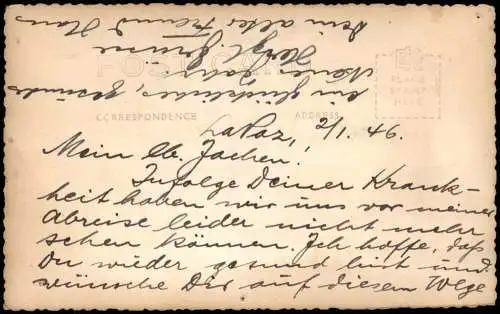 POST CARD
PLACE
STAMP
HERE
CORRESPONDENCE
ADDRESS
La Paz, 2/1. 46.
Mein lb. Jochen!
Infolge Deiner Krank-
heit haben wir uns vor meiner
Abreise leider nicht mehr
sehen können. Ich hoffe, daß
Du wieder gesund bist und
wünsche Dir auf diesem Wege
ein glückliches, gesundes
Neues Jahr.
Herzl. Grüsse
Dein alter Freund Hans